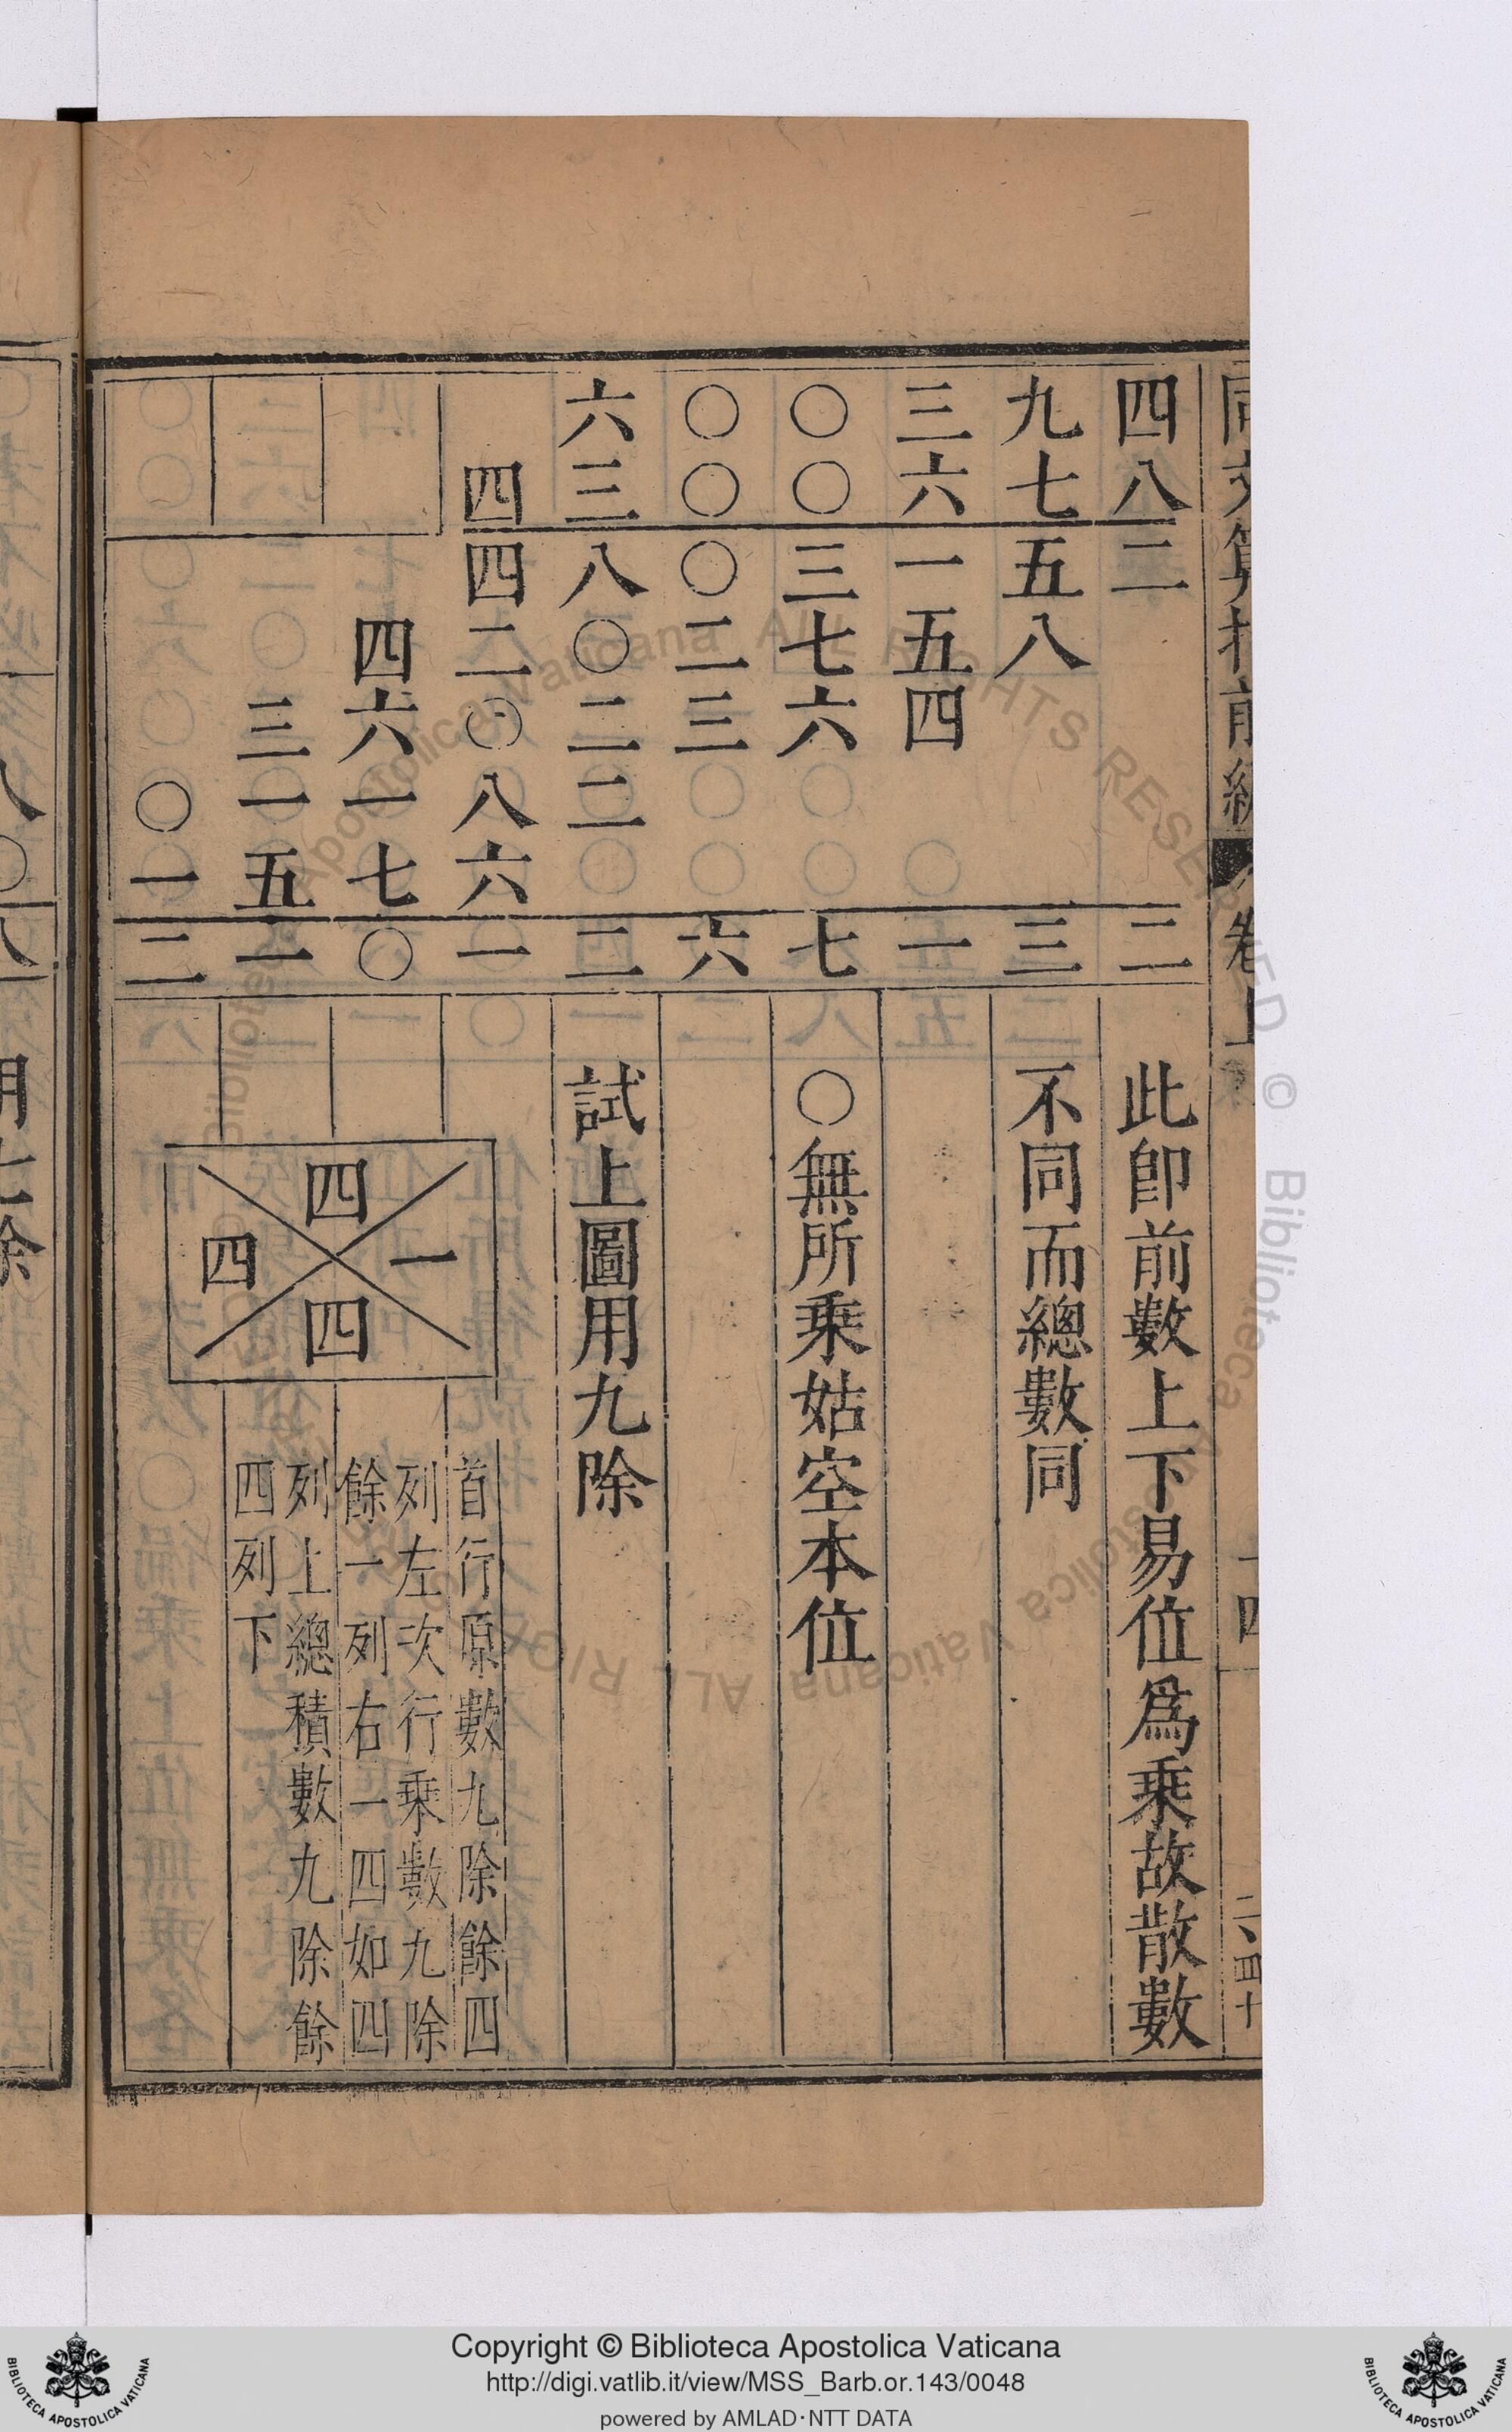 同文算指前編 卷上
四八二二
此卽前數上下易位爲乗故散數
九七五八三
不同而總數同
三六一五四一
〇〇三七六七
〇無所乗姑空本位
〇〇〇二三六
六三八〇二二二
試上圖用九除
四四二〇八六一
四六一七〇
三一五一
〇一二
四
一
四
四
首行原數九除餘四
列左次行乗數九除
餘一列右一四如四
列上總積數九除餘
四列下
Copyright © Biblioteca Apostolica Vaticana
http://digi.vatlib.it/view/MSS_Barb.or.143/0048
powered by AMLAD·NTT DATA
BIBLIOTECA APOSTOLICA VATICANA
BIBLIOTECA APOSTOLICA VATICANA